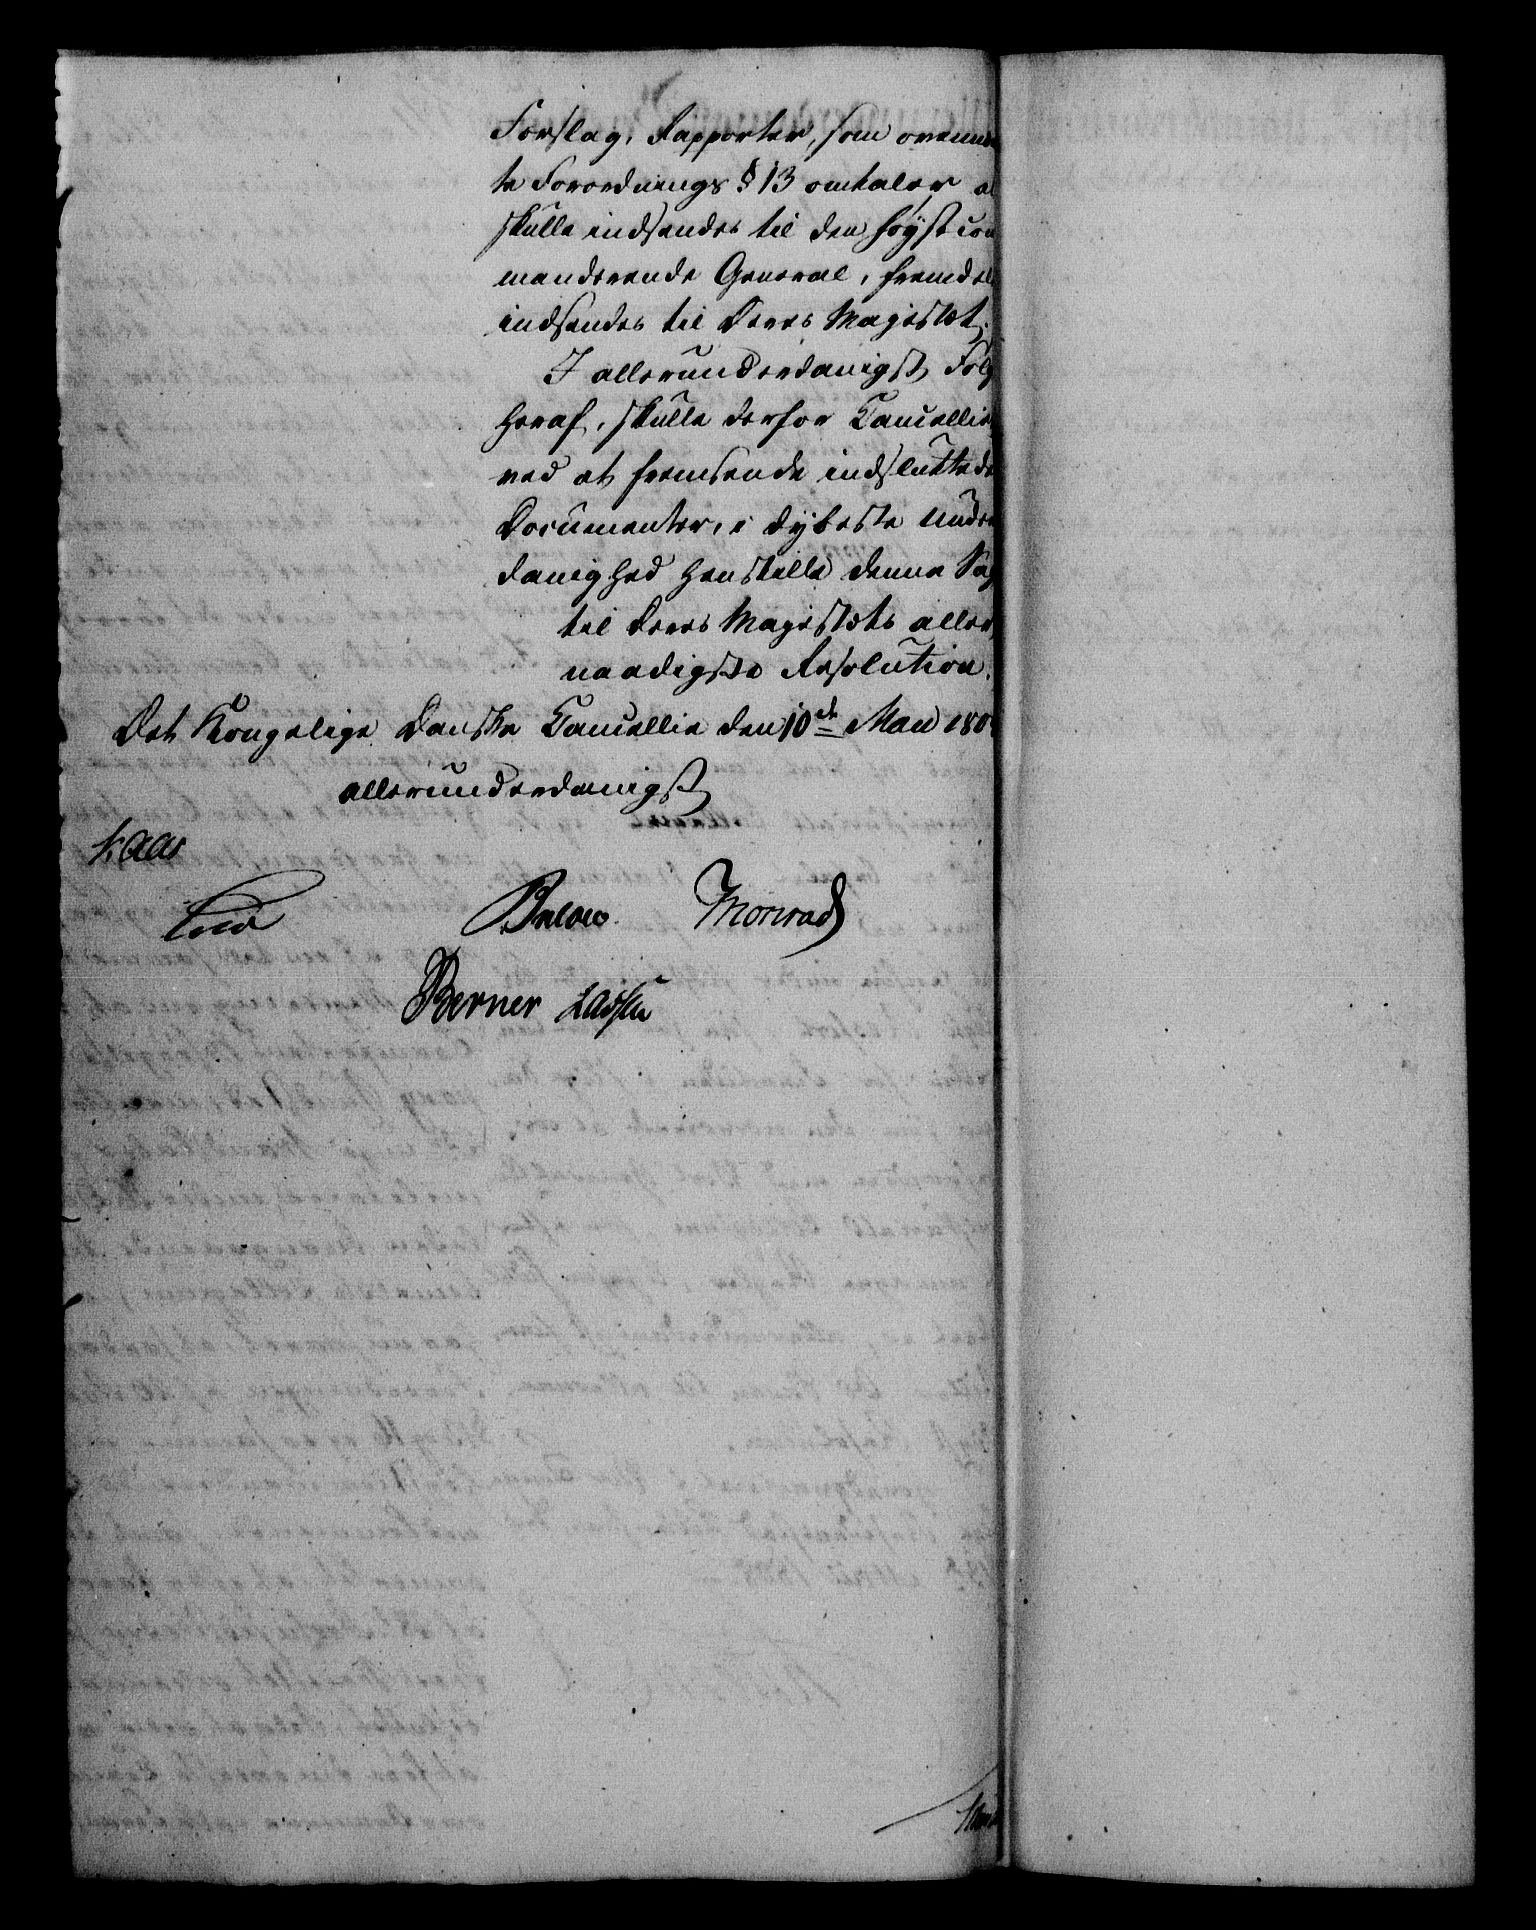 Forslag, Rapporter, som ovenmeld
te Forordnings § 13 omtaler at
skulle indsendes til den høyst com
manderende General, fremdeles
indsendes til Deres Majestæt.
I allerunderdanigst Følge
heraf, skulle derfor Cancelliet
ved at fremsende indsluttede
Documenter, i dybeste Under
danighed henstille denne Sag
til Deres Majestæts aller
naadigste Resolution.
Det Kongelige Danske Cancellie den 10de Maii 180
allerunderdanigst
Kaas
Bülow Monrad
Berner Lassen